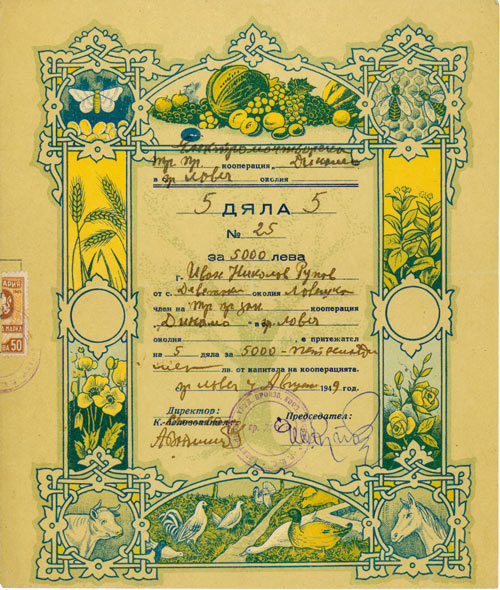 Електромонтьорска
Тр. Пр. кооперация „Динамо“
в гр. Ловеч околия
5 ДЯЛА 5
№ 25
за 5000 лева
г. Иван Николов
от с. Деветаки околия Ловешка
член на Тр. пр. зан. кооперация
„Динамо“ в гр. Ловеч
околия е притежател
на 5 дяла за 5000 - петхиляди
лв. от капитала на кооперацията.
гр. Ловеч 4 Август 1949 год.
Директор: Председател:
К.-
АРИЯ
МАРКА
ВА 50